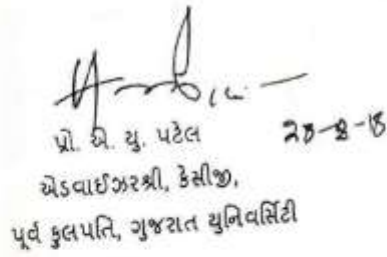 પ્રો. એ. યુ. પટેલ
એડવાઈઝરશ્રી, કેસીજી,
પૂર્વ કુલપતિ, ગુજરાત યુનિવર્સિટી